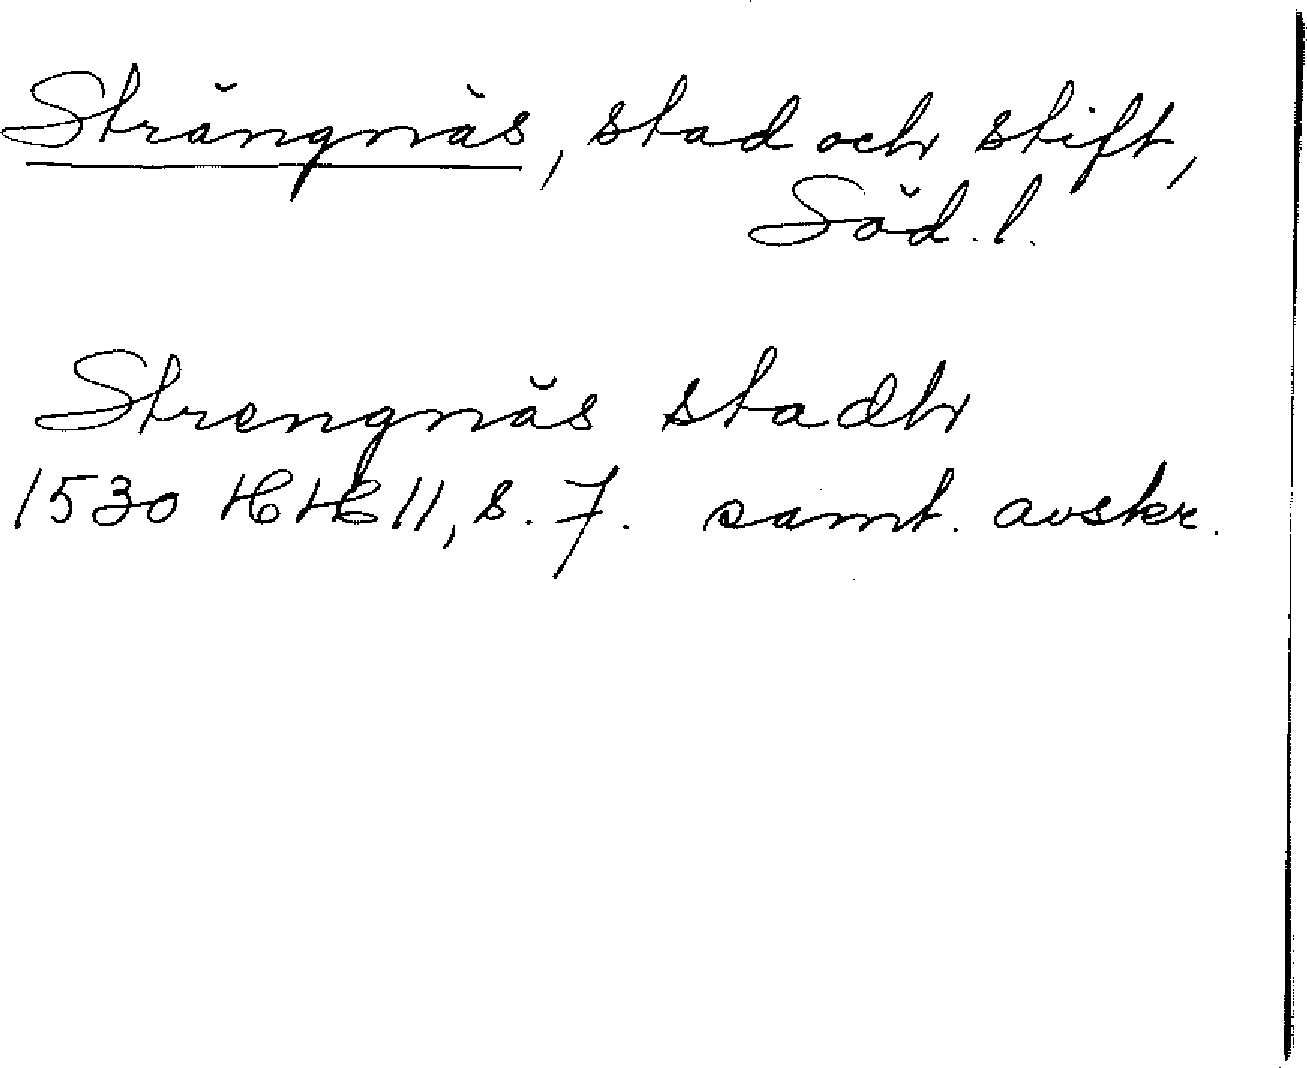 Strängnäs, stad och stift,
Söd. l.
Strengnäs stadh
1530 HH 11, s. 7. samt. avskr.